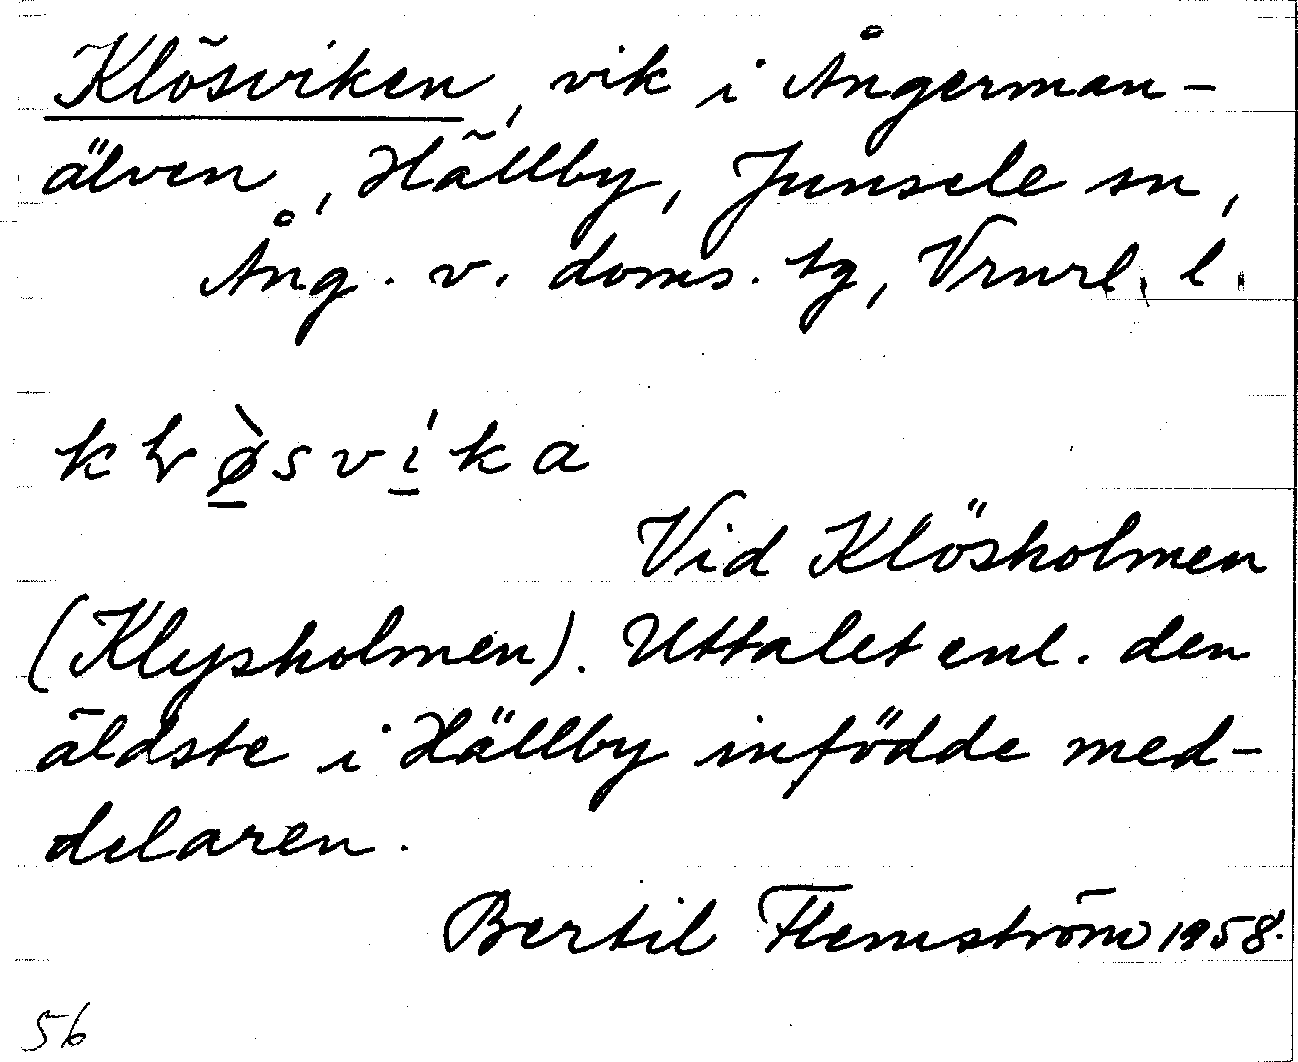 Klösviken, vik i Ångerman-
älven, Hällby, Junsele sn,
Ång. v. doms. tg, Vrnrl. l.
kƚø̀svíka
Vid Klösholmen
(Klysholmen). Uttalet enl. den
äldste i Hällby infödde med-
delaren.
Bertil Flemström 1958.
56